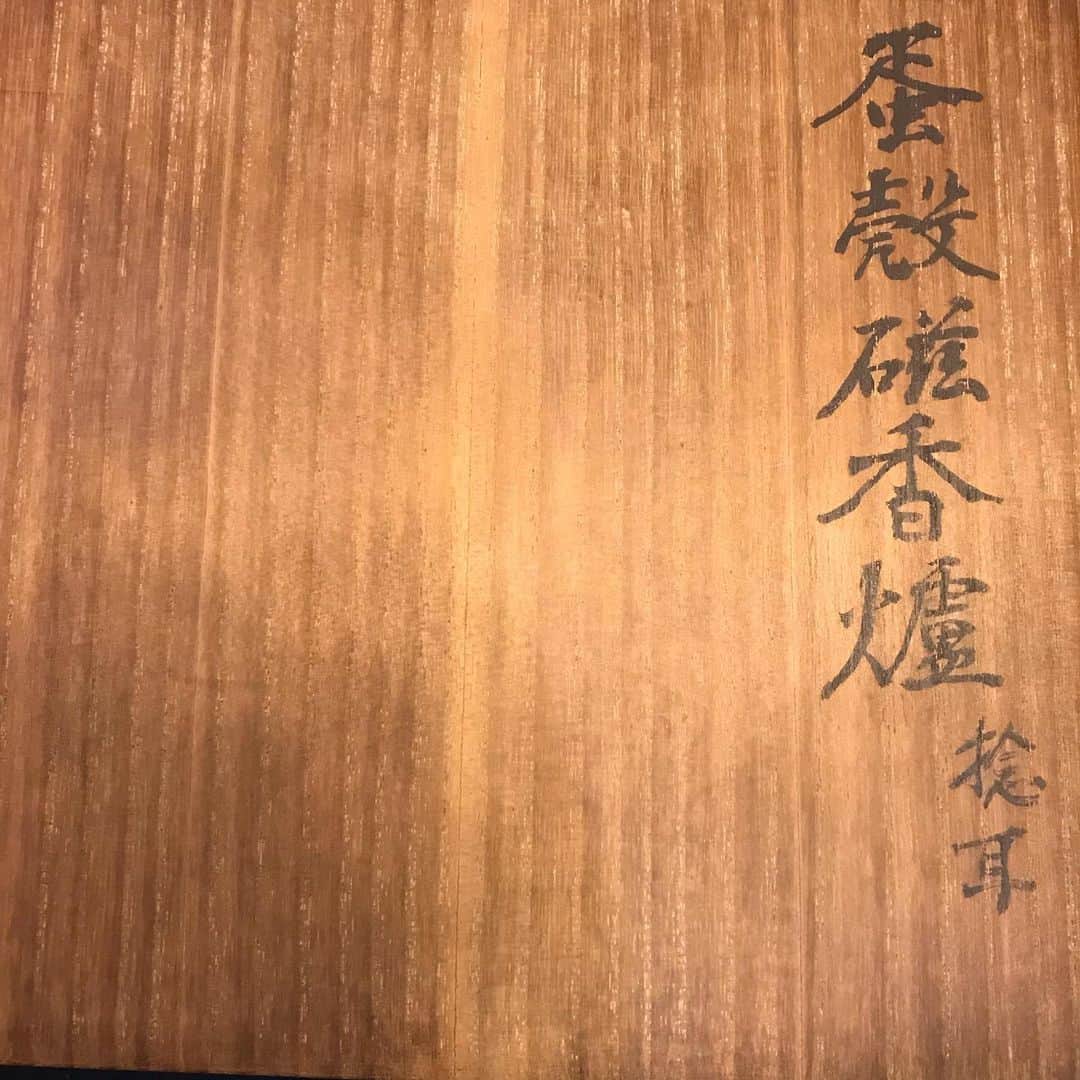 蛋殼磁香爐
捻耳